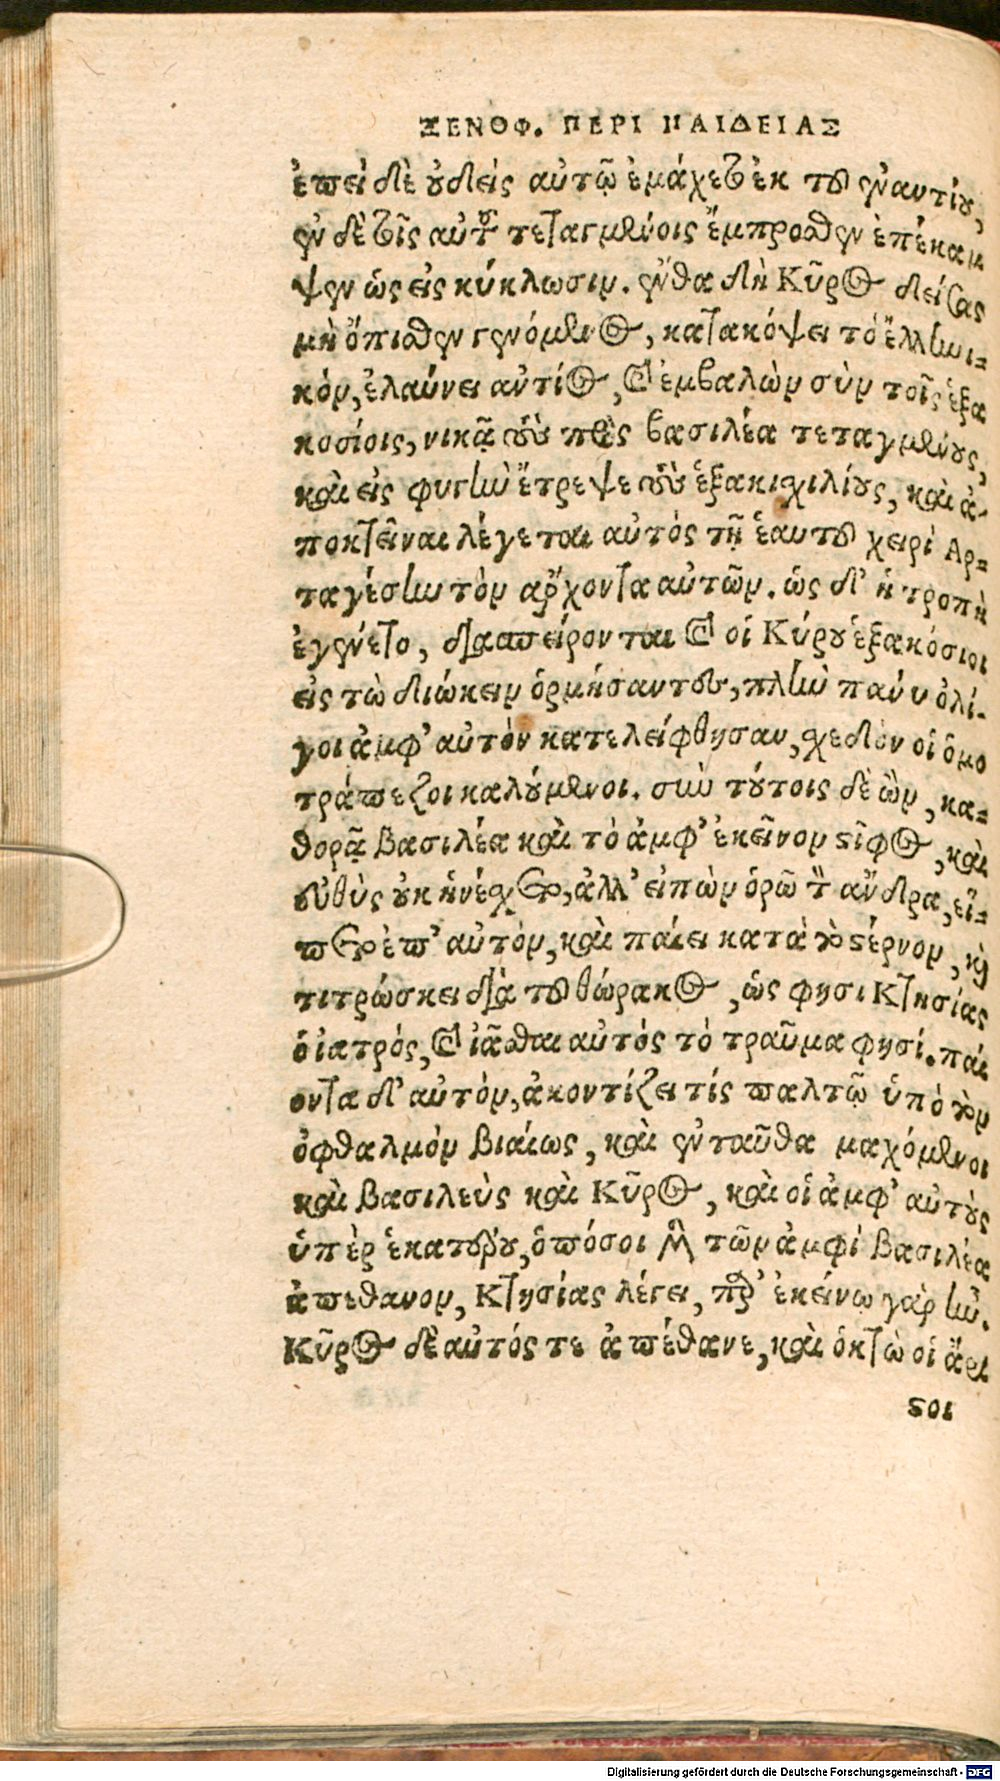 ΞΕΝΟΦ. ΠΕΡΙ ΠΑΙΔΕΙΑΣ
ἐπεὶ δὲ οὐδεὶς αὐτῷ ἐμάχετο ἐκ τοῦ ἐναντίου,
ἐν δὲ τοῖς αὐτοῦ τεταγμένοις ἔμπροσθεν ἐπέκαμ
ψεν ὡς εἰς κύκλωσιν. ἔνθα δὴ Κῦρος δείσας
μὴ ὄπισθεν γενόμενος, κατακόψει τὸ ἑλληνι-
κὸν, ἐλαύνει ἀντίος, καὶ ἐμβαλὼν σὺν τοῖς ἑξα
κοσίοις, νικᾷ τοὺς πρὸς βασιλέα τεταγμένους,
καὶ εἰς φυγὴν ἔτρεψε τοὺς ἑξακισχιλίους, καὶ ἀ-
ποκτεῖναι λέγεται αὐτὸς τῇ ἑαυτοῦ χειρὶ Αρ-
ταγέσην τὸν ἄρχοντα αὐτῶν. ὡς δ' ἡ τροπὴ
ἐγένετο, διασπείρονται καὶ οἱ Κύρου ἑξακόσιοι
εἰς τὸ διώκειν ὁρμήσαντες, πλὴν πάνυ ὀλί-
γοι ἀμφ' αὐτὸν κατελείφθησαν, σχεδὸν οἱ ὁμο
τράπεζοι καλούμενοι. σὺν τούτοις δὲ ὢν, κα-
θορᾷ βασιλέα καὶ τὸ ἀμφ' ἐκεῖνον στῖφος, καὶ
εὐθὺς οὐκ ἠνέσχετο, ἀλλ' εἰπὼν ὁρῶ τὸν ἄνδρα, εἵ-
πετο ἐπ' αὐτὸν, καὶ παίει κατὰ τὸ στέρνον, καὶ
τιτρώσκει διὰ τοῦ θώρακος, ὥς φησι Κτησίας
ὁ ἰατρὸς, καὶ ἰᾶσθαι αὐτὸς τὸ τραῦμα φησί. παί
οντα δ' αὐτὸν, ἀκοντίζει τὶς παλτῷ ὑπὸ τὸν
ὀφθαλμὸν βιαίως, καὶ ἐνταῦθα μαχόμενοι
καὶ βασιλεὺς καὶ Κῦρος, καὶ οἱ ἀμφ' αὐτοὺς
ὑπὲρ ἑκατέρου, ὁπόσοι μὲν τῶν ἀμφὶ βασιλέα
ἀπέθανον, Κτησίας λέγει, παρ' ἐκείνῳ γὰρ ἦν.
Κῦρος δὲ αὐτός τε ἀπέθανε, καὶ ὀκτὼ οἱ ἄρι
στοι
Digitalisierung gefördert durch die Deutsche Forschungsgemeinschaft - DFG